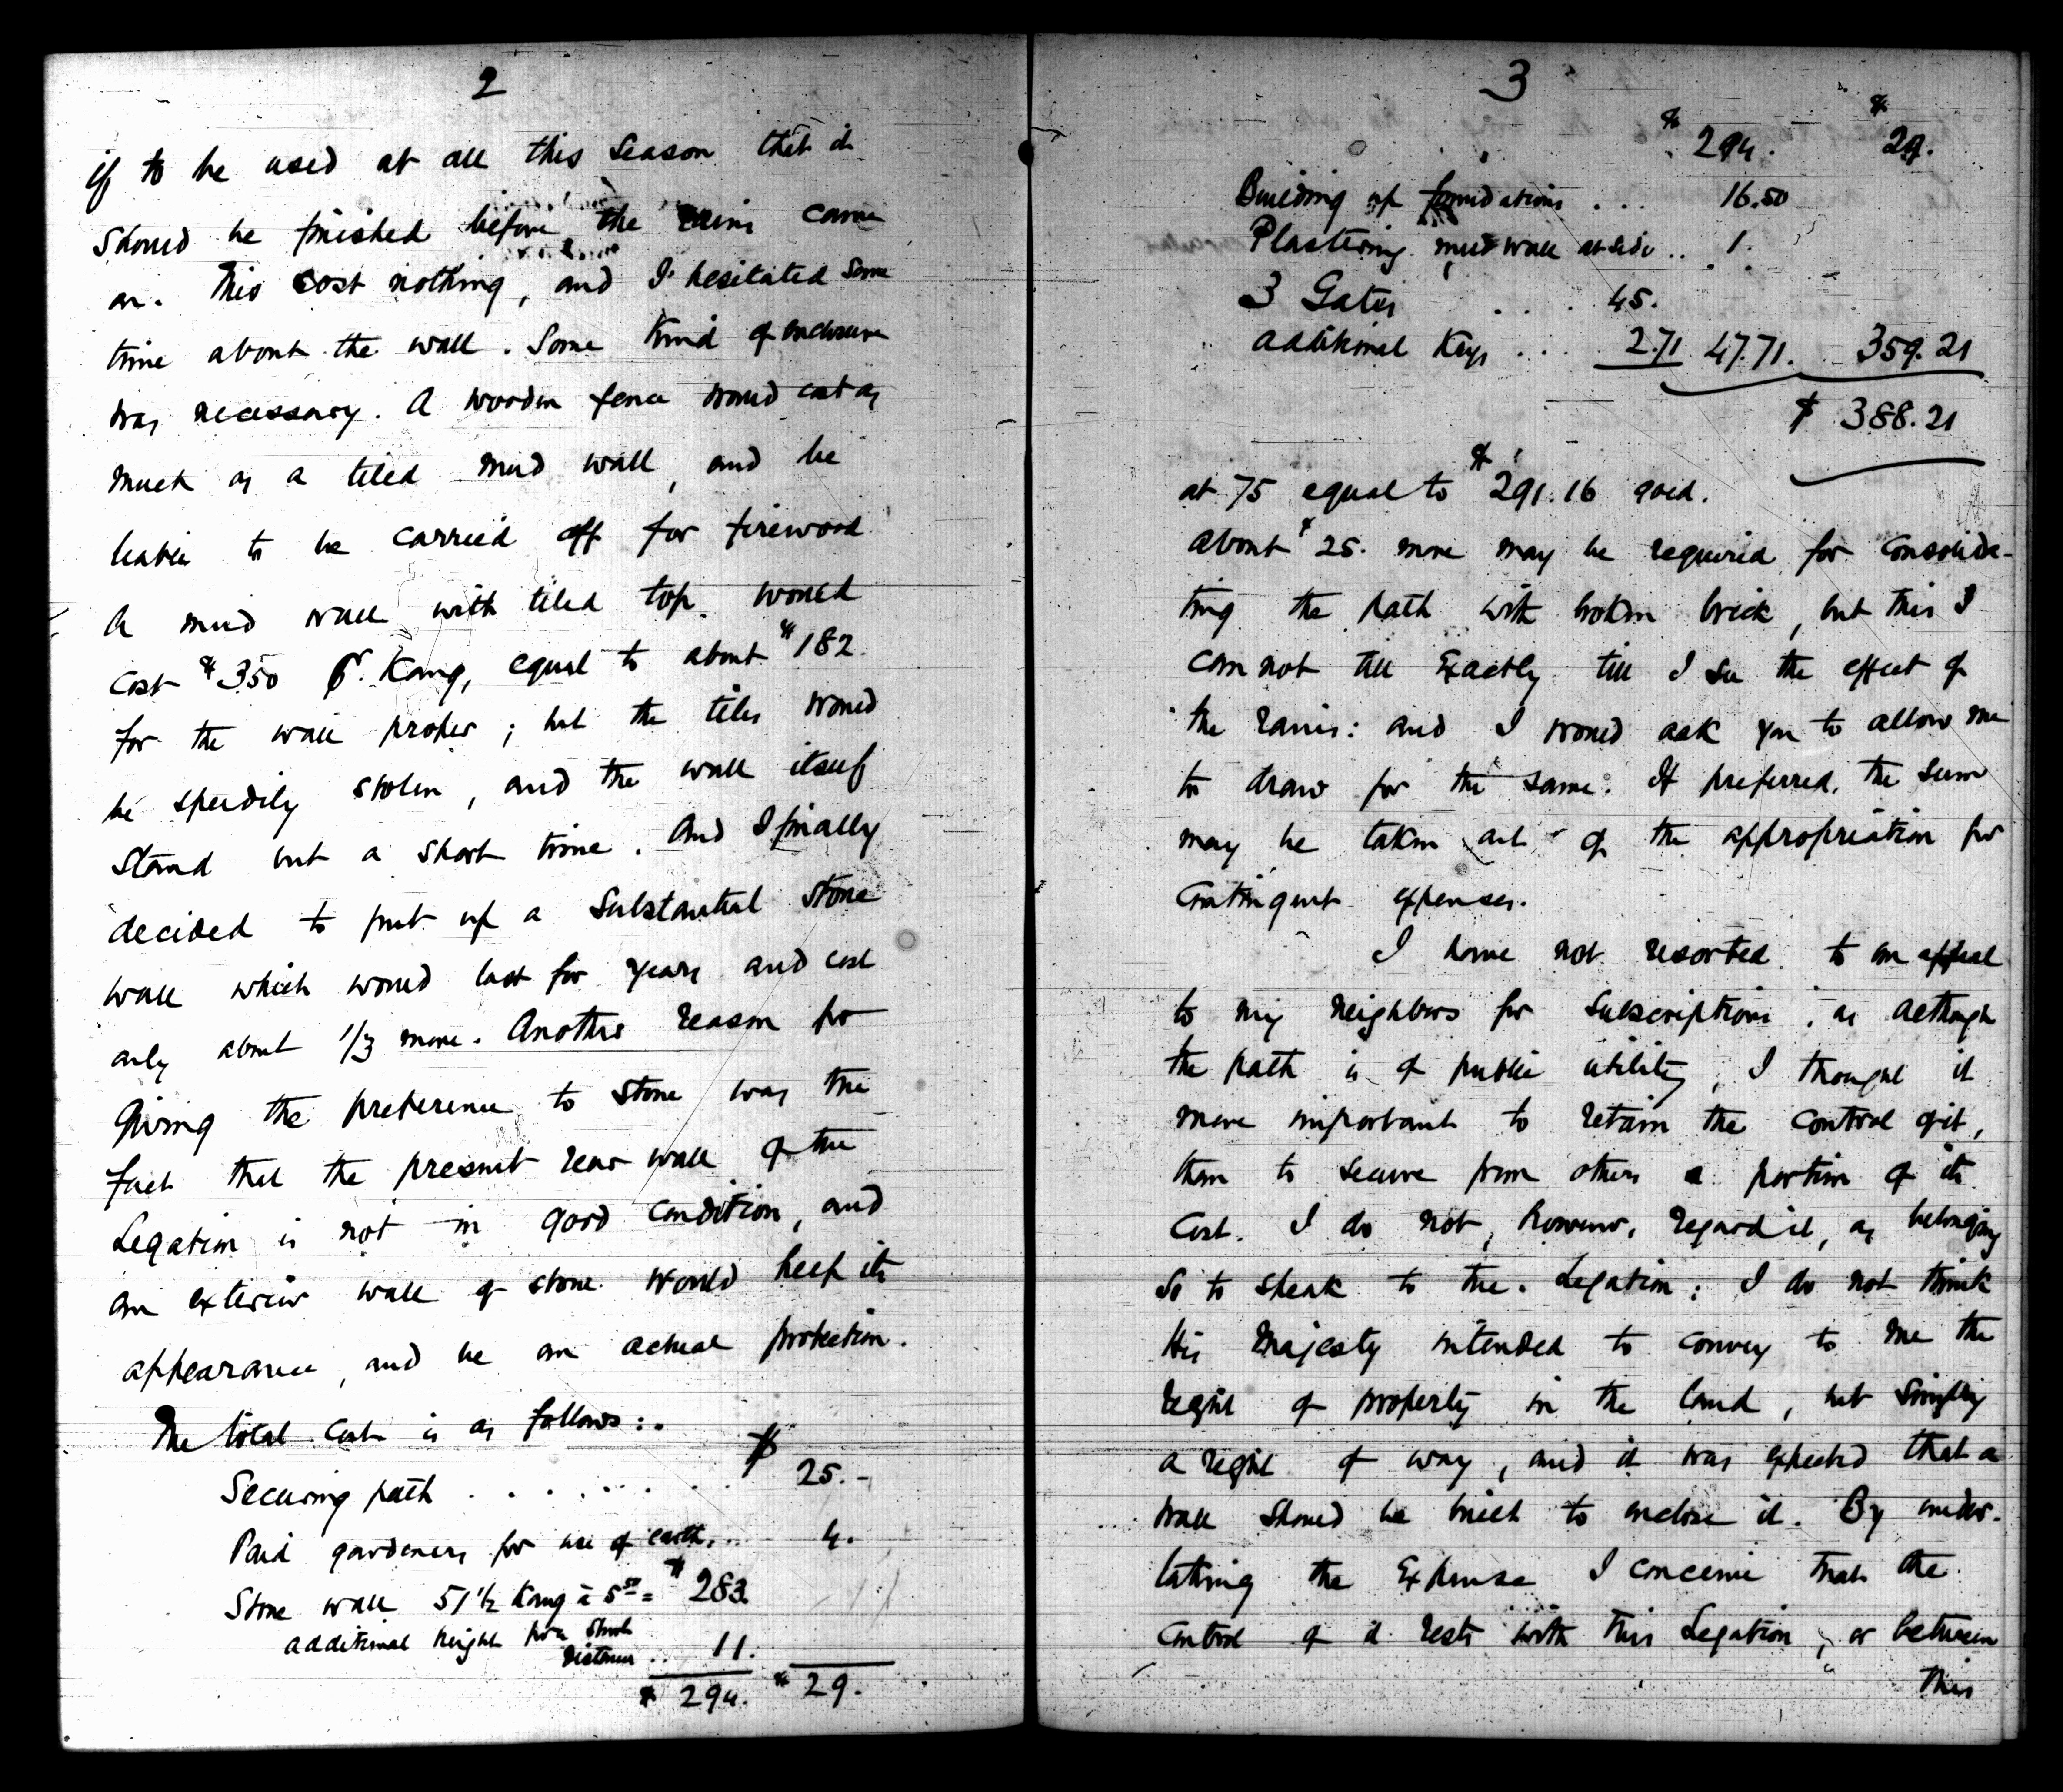 2
if to be used at all this season that it
should be finished before the rains came
on. This cost nothing, and I hesitated some
time about the wall. Some kind of enclosure
was necessary. A wooden fence would cost as
much as a tiled mud wall, and be
liable to be carried off for firewood
A mud wall with tiled top would
cost $3.50 pr. Kang, equal to about $182.
for the wall proper; but the tiles would
be speedily stolen, and the wall itself
stand but a short time. And I finally
decided to put up a substantial stone
wall which would last for years and cost
only about 1/3 more. Another reason for
giving the preference to stone was the
fact that the present rear wall of the
Legation is not in good condition, and
an exterior wall of stone would keep its
appearance, and be an actual protection.
The total cost is as follows:
Securing path . . . . . . . $ 25.-
Paid gardeners for use of earth... 4.
Stone wall 51 1/2 Kang à 5 50 = $ 283.
additional height for a short
distance .. 11.
$ 294. $ 29.
3
$ 294. $ 29.
Building up foundations . . . 16.50
Plastering mud wall outside .. 1.
3 Gates . . . . 45.
additional Keys . . . 2.71 47.71. 359.21
$ 388.21
at 75 equal to $291.16 gold.
About $25. more may be required for consolida-
ting the path with broken brick, but this I
can not tell exactly till I see the effect of
the rains: and I would ask you to allow me
to draw for the same. If preferred, the sum
may be taken out of the appropriation for
Contingent expenses.
I have not resorted to an appeal
to my neighbors for subscriptions, as although
the path is of public utility, I thought it
more important to retain the control of it,
than to secure from others a portion of its
cost. I do not, however, regard it, as belonging
so to speak to the Legation: I do not think
His Majesty intended to convey to me the
right of property in the land, but simply
a right of way, and it was expected that a
wall should be built to enclose it. By under-
taking the expense I conceive that the
control of it rests with this Legation, or between
this